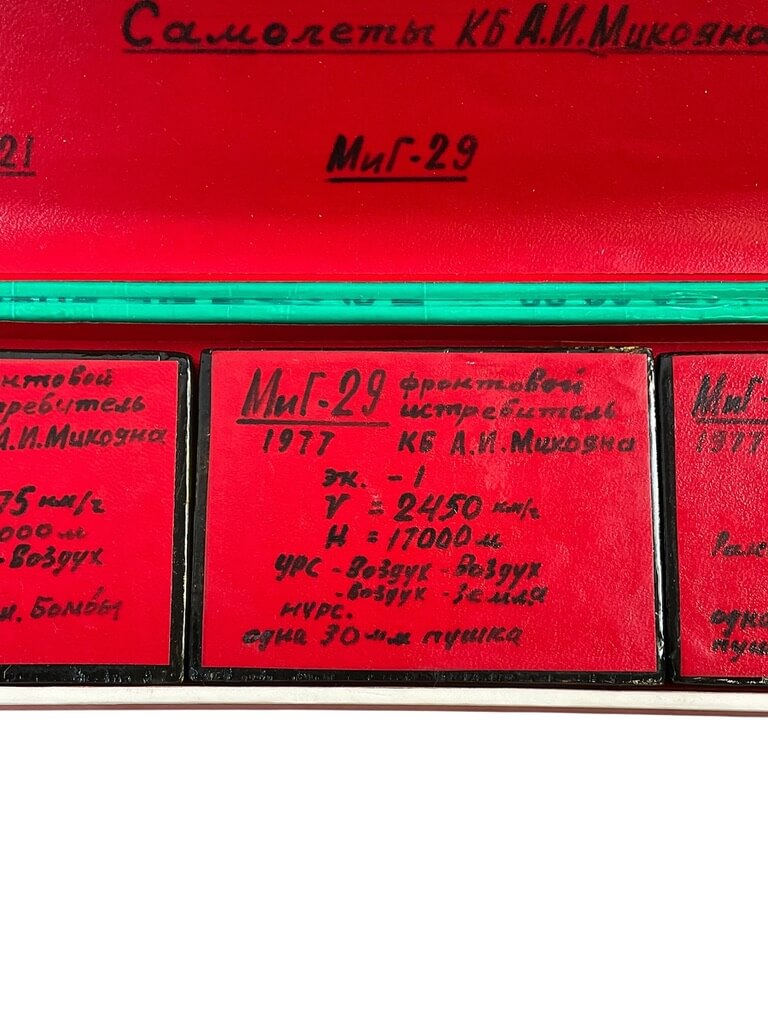 Самолеты КБ А.И.Микояна
21
МиГ-29
МиГ-29 фронтовой
истребитель
1977 КБ А.И.Микояна
эк. - 1
V = 2450 км/г
H = 17000 м
УРС - Воздух - Воздух
- воздух - Земля
НУРС.
одна 30 мм пушка
нтовой
требитель
А.И.Микояна
75 км/г
000 м
- Воздух
и. Бомбы
МиГ-
1977
одна
пуш